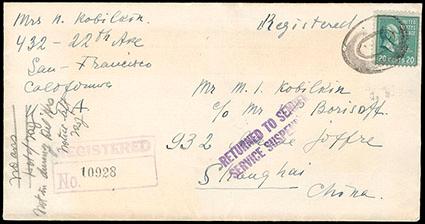 Mrs. N. Kobilkin.
432 - 22th Ave
San - Francisco
California
Registered
UNITED STATES
POSTAGE
20 CENTS 20
Mr M. I. Kobilkin
c/o Mr Borisoff
932 Joffre
Shanghai
China.
RETURNED TO SENDER
SERVICE SUSPENDED
REGISTERED
No. 10928